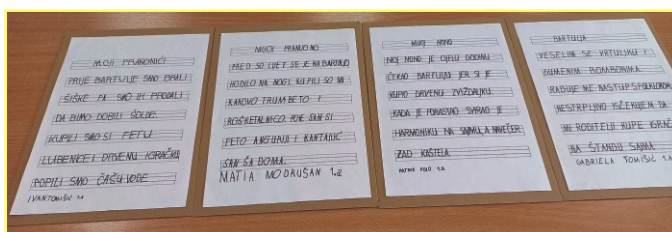 MOJI PRANONIĆI
PRIJE BARTULJE SMO BRALI
ŠIŠKE PA SMO IH PRODALI
DA BISMO DOBILI ŠOLDE.
KUPILI SMO SI FETU
LUBENICE I DRVENU IGRAČKU
POPILI SMO ČAŠU VODE
IVAN TOMIŠIĆ 1.a
MUOJ PRANUONO
PRED 50 LJET SE JE NA BARTUOJU
HODILO NA NOGI. KUPILI SO NI
KAKOVO TRUMBETO I
ROŠKETALNICO. PONE SAN SI
FETO ANGURIJI I KANTAJUĆ
SAN ŠA DOMA.
MATIA MODRUŠAN 1.a
MUOJ NONO
MOJ NONO JE CIJELU GODINU
ČEKAO BARTULJU JER SI JE
KUPIO DRVENU ZVIŽDALJKU.
KADA JE PORASTAO SVIRAO JE
HARMONIKU NA SAJMU, A NAVEČER
ZAD KAŠTELA.
1.a
BARTULJA
VESELIM SE VRTULJKU I
GUMENIM BOMBONIMA.
RADUJE ME NASTUP S FOLKLOROM
NESTRPLJIVO IŠČEKUJEM DA
MI RODITELJI KUPE IGRAČKU
NA ŠTANDU SAJMA.
GABRIELA TOMIŠIĆ 1.a